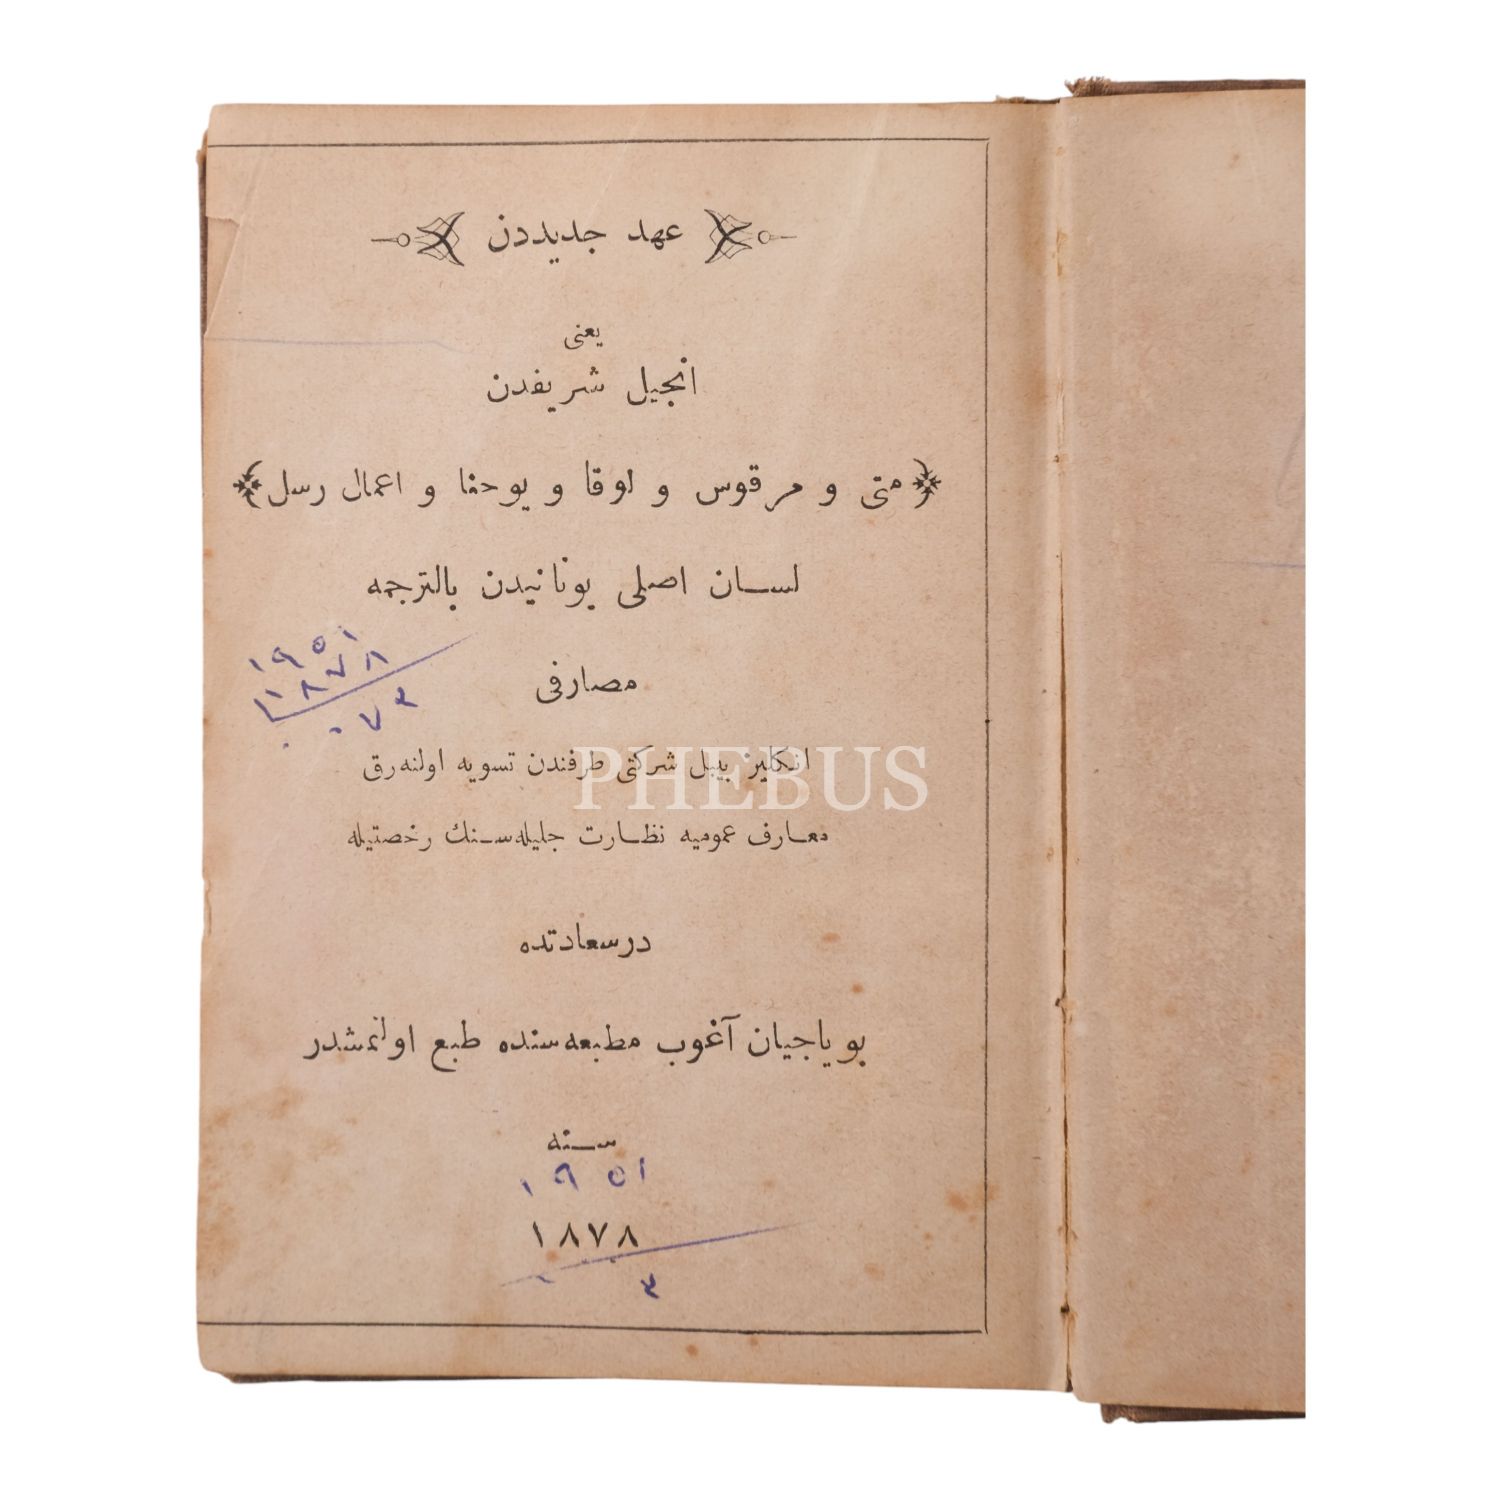 عهد جدیددن
یعنی
انجیل شریفدن
متی و مرقوس و لوقا و یوحنا و اعمال رسل
لسان اصلی یونانیدن بالترجمه
مصارفی
انکلیز بیبل شرکتی طرفندن تسویه اولنه‌رق
معارف عمومیه نظارت جلیله‌سنك رخصتیله
درسعادتده
بویاجیان آغوب مطبعه‌سنده طبع اولنمشدر
سنه
١٩٥١
١٨٧٨
٣
١٩٥١
١٨٧٨
٠٧٣
PHEBUS